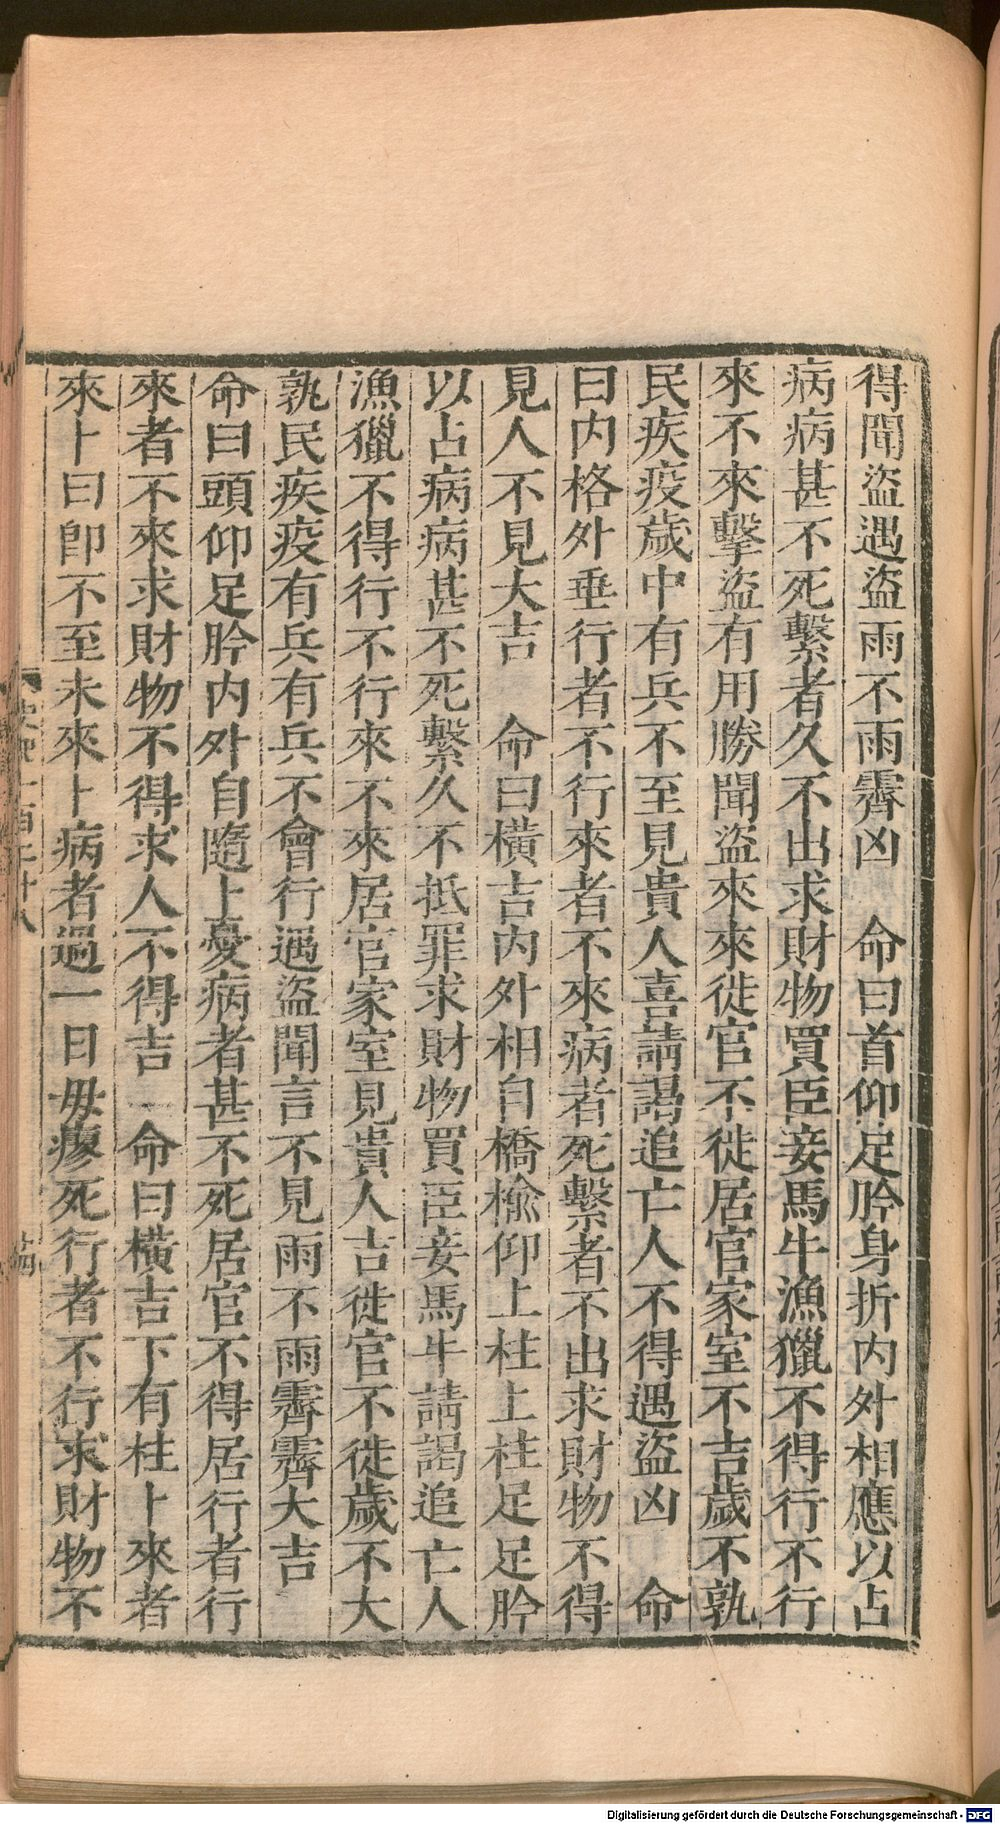 得聞盜遇盜雨不雨霽凶　命曰首仰足肣身折內外相應以占
病病甚不死繫者久不出求財物買臣妾馬牛漁獵不得行不行
來不來擊盜有用勝聞盜來來徙官不徙居官家室不吉歲不孰
民疾疫歲中有兵不至見貴人喜請謁追亡人不得遇盜凶　命
曰內格外垂行者不行來者不來病者死繫者不出求財物不得
見人不見大吉　命曰橫吉內外相自橋榆仰上柱上柱足足肣
以占病病甚不死繫久不抵罪求財物買臣妾馬牛請謁追亡人
漁獵不得行不行來不來居官家室見貴人吉徙官不徙歲不大
孰民疾疫有兵有兵不會行遇盜聞言不見雨不雨霽霽大吉
命曰頭仰足肣內外自隨卜憂病者甚不死居官不得居行者行
來者不來求財物不得求人不得吉　命曰橫吉下有柱卜來者
來卜曰卽不至未來卜病者過一日毋瘳死行者不行求財物不
Digitalisierung gefördert durch die Deutsche Forschungsgemeinschaft - DFG